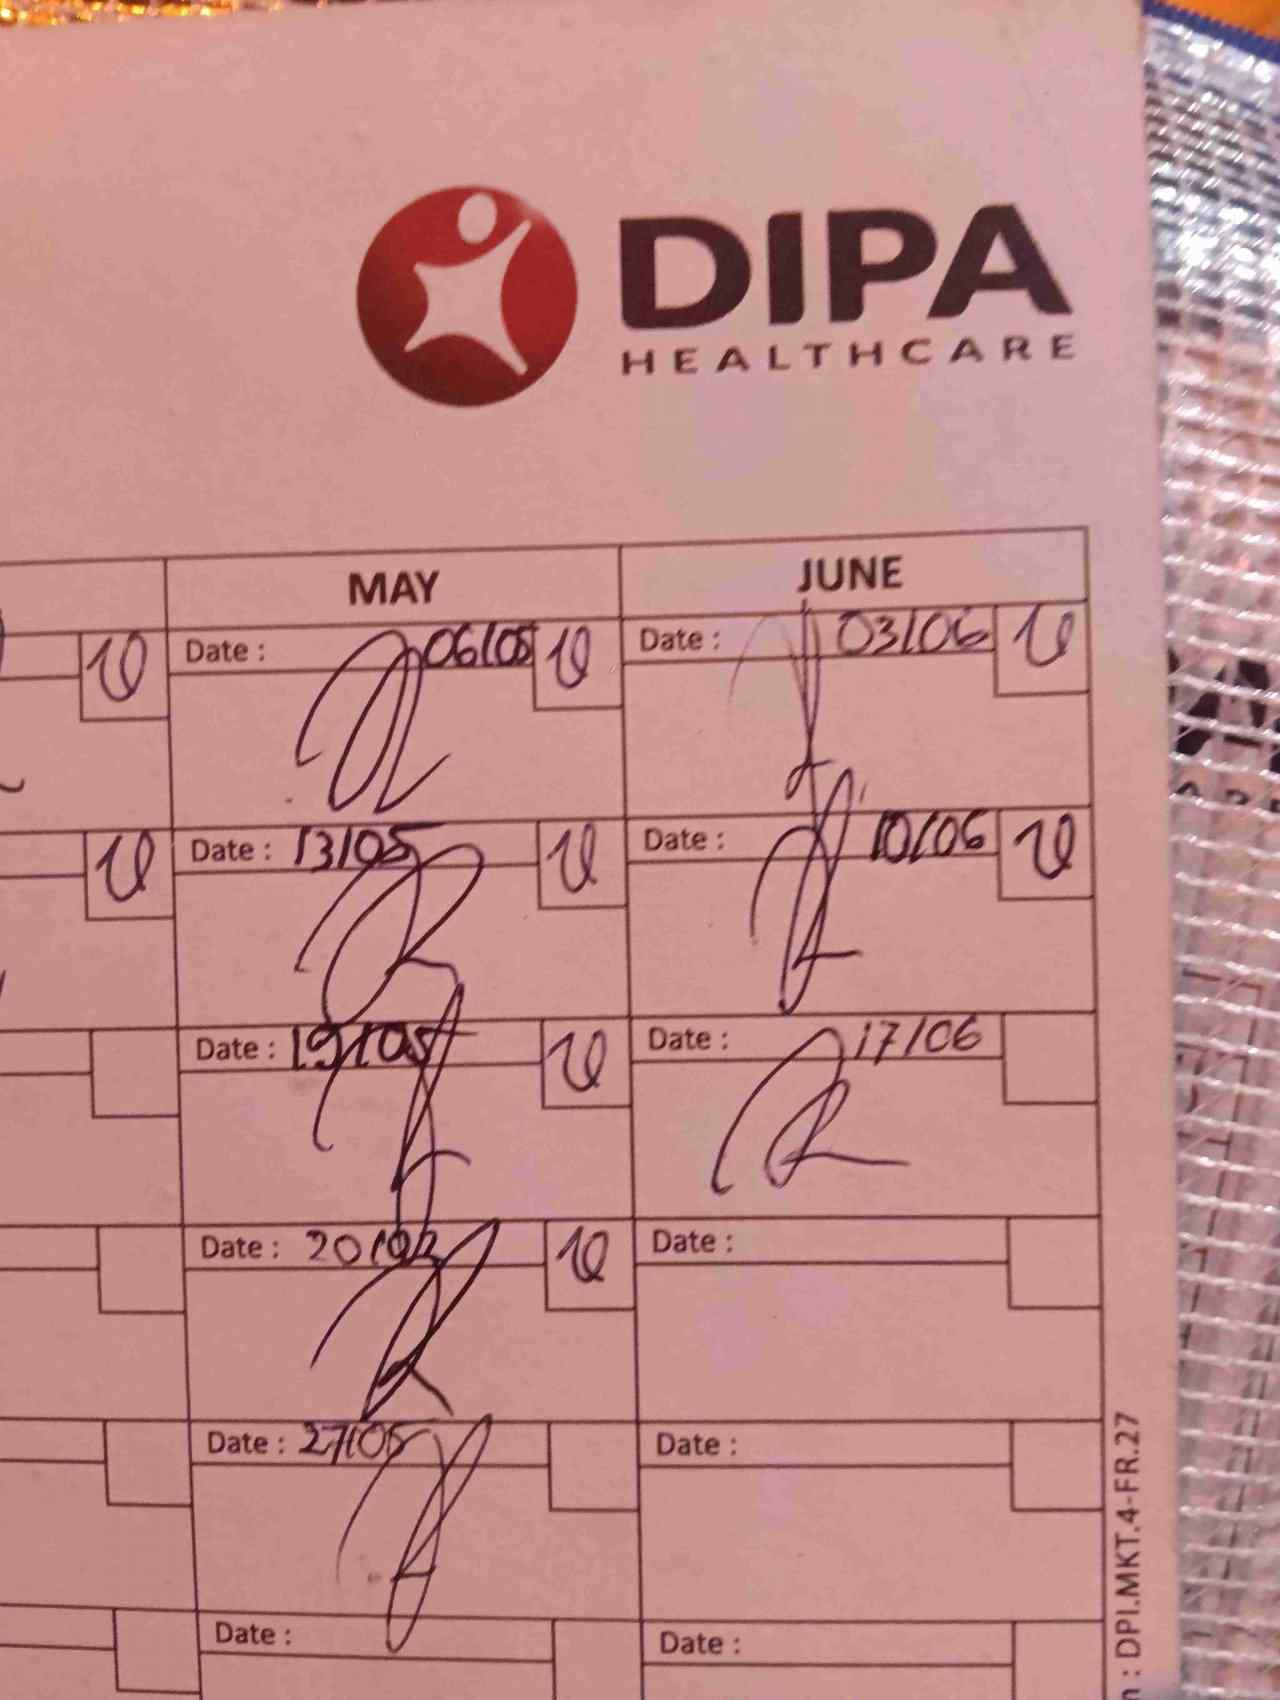 DIPA
HEALTHCARE
MAY JUNE
Date : 06/05 Date : 03/06
Date : 13/05 Date : 10/06
Date : 19/05 Date : 17/06
Date : Date :
Date : 27/05 Date :
Date : Date :
: DPI.MKT.4-FR.27